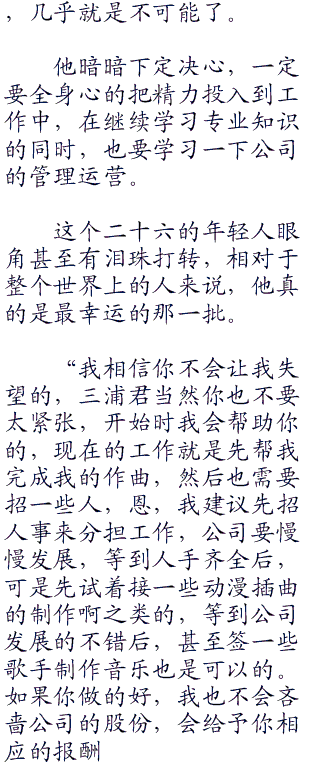 ，几乎就是不可能了。
他暗暗下定决心，一定
要全身心的把精力投入到工
作中，在继续学习专业知识
的同时，也要学习一下公司
的管理运营。
这个二十六的年轻人眼
角甚至有泪珠打转，相对于
整个世界上的人来说，他真
的是最幸运的那一批。
“我相信你不会让我失
望的，三浦君当然你也不要
太紧张，开始时我会帮助你
的，现在的工作就是先帮我
完成我的作曲，然后也需要
招一些人，恩，我建议先招
人事来分担工作，公司要慢
慢发展，等到人手齐全后，
可是先试着接一些动漫插曲
的制作啊之类的，等到公司
发展的不错后，甚至签一些
歌手制作音乐也是可以的。
如果你做的好，我也不会吝
啬公司的股份，会给予你相
应的报酬